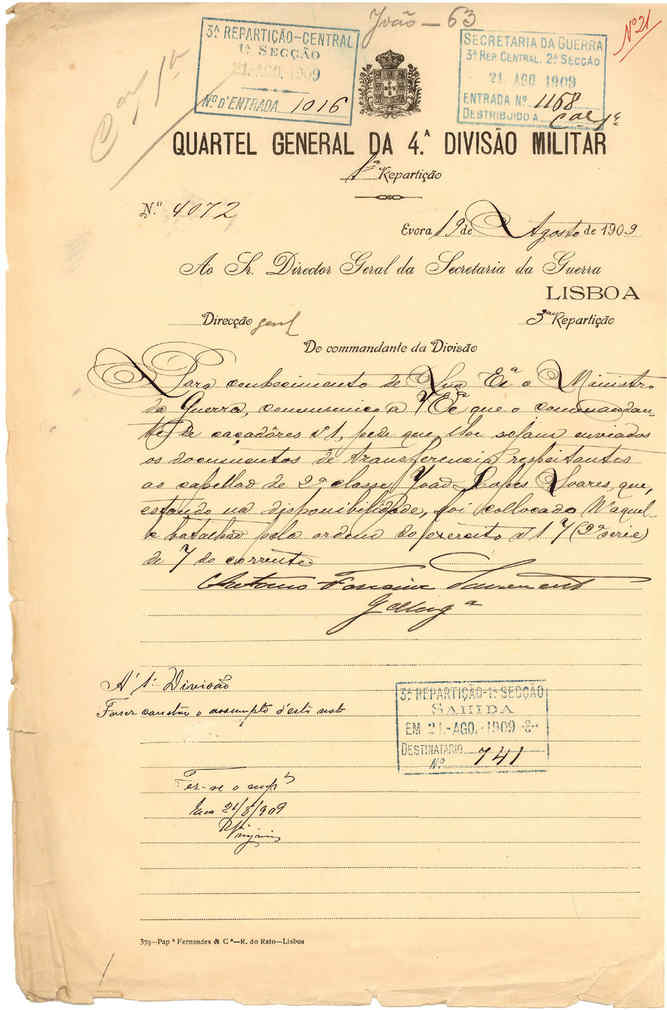 João – 63
Nº 21
3ª REPARTIÇÃO-CENTRAL
1ª SECÇÃO
21. AGO. 1909
Nº D'ENTRADA 1016
SECRETARIA DA GUERRA
3ª REP. CENTRAL. 2ª SECÇÃO
21 AGO 1909
ENTRADA Nº 1168
DESTRIBUIDO A
QUARTEL GENERAL DA 4.ª DIVISÃO MILITAR
1ª Repartição
N.º 4072
Evora 19 de Agosto de 1909
Ao Sr. Director Geral da Secretaria da Guerra
LISBOA
Direcção geral
3ª Repartição
Do commandante da Divisão
Para conhecimento de Sua Exª o Ministro
da Guerra, communico a VExª que o commandan-
te de caçadôres nº 1, pede que lhe sejam enviados
os documentos de transferencia respeitantes
ao capellão de 2ª classe João Lopes Soares que,
estando na disponibilidade, foi collocado n'aquel-
le batalhão pela ordem do exercito nº 17 (2ª serie)
de 7 do corrente
Antonio
General
A' 1ª Divisão
o assumpto d'esta nota
3ª REPARTIÇÃO-1ª SECÇÃO
SAHIDA
EM 21-AGO.-1909
DESTINATARIO
Nº 741
21/8/909
359—Pap.ª Fernandes & C.ª—R. do Rato—Lisboa